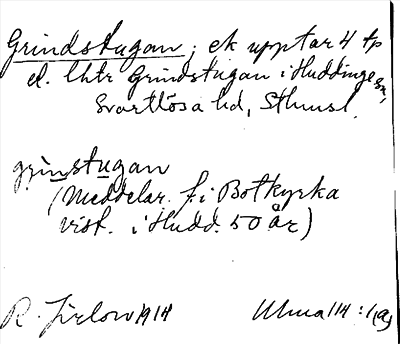 Grindstugan; ek upptar 4 tp
el. lhtr Grindstugan i Huddinge sn,
Svartlösa hd, Sthmsl.
grinstugan
(Meddelar. f. i Botkyrka
vist. i Hudd. 50 år)
R. Jirlow 1914
Ulma 114:1(a)